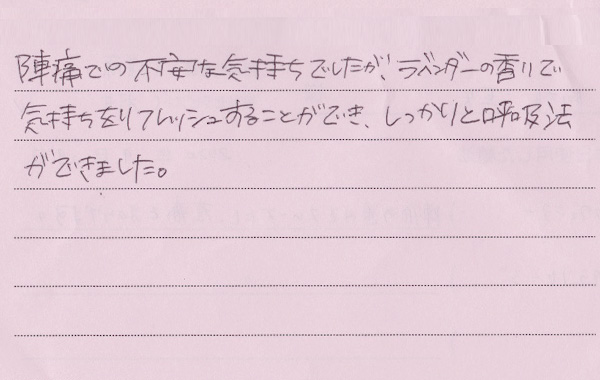 陣痛での不安な気持ちでしたが、ラベンダーの香りで
気持ちをリフレッシュすることができ、しっかりと呼吸法
ができました。